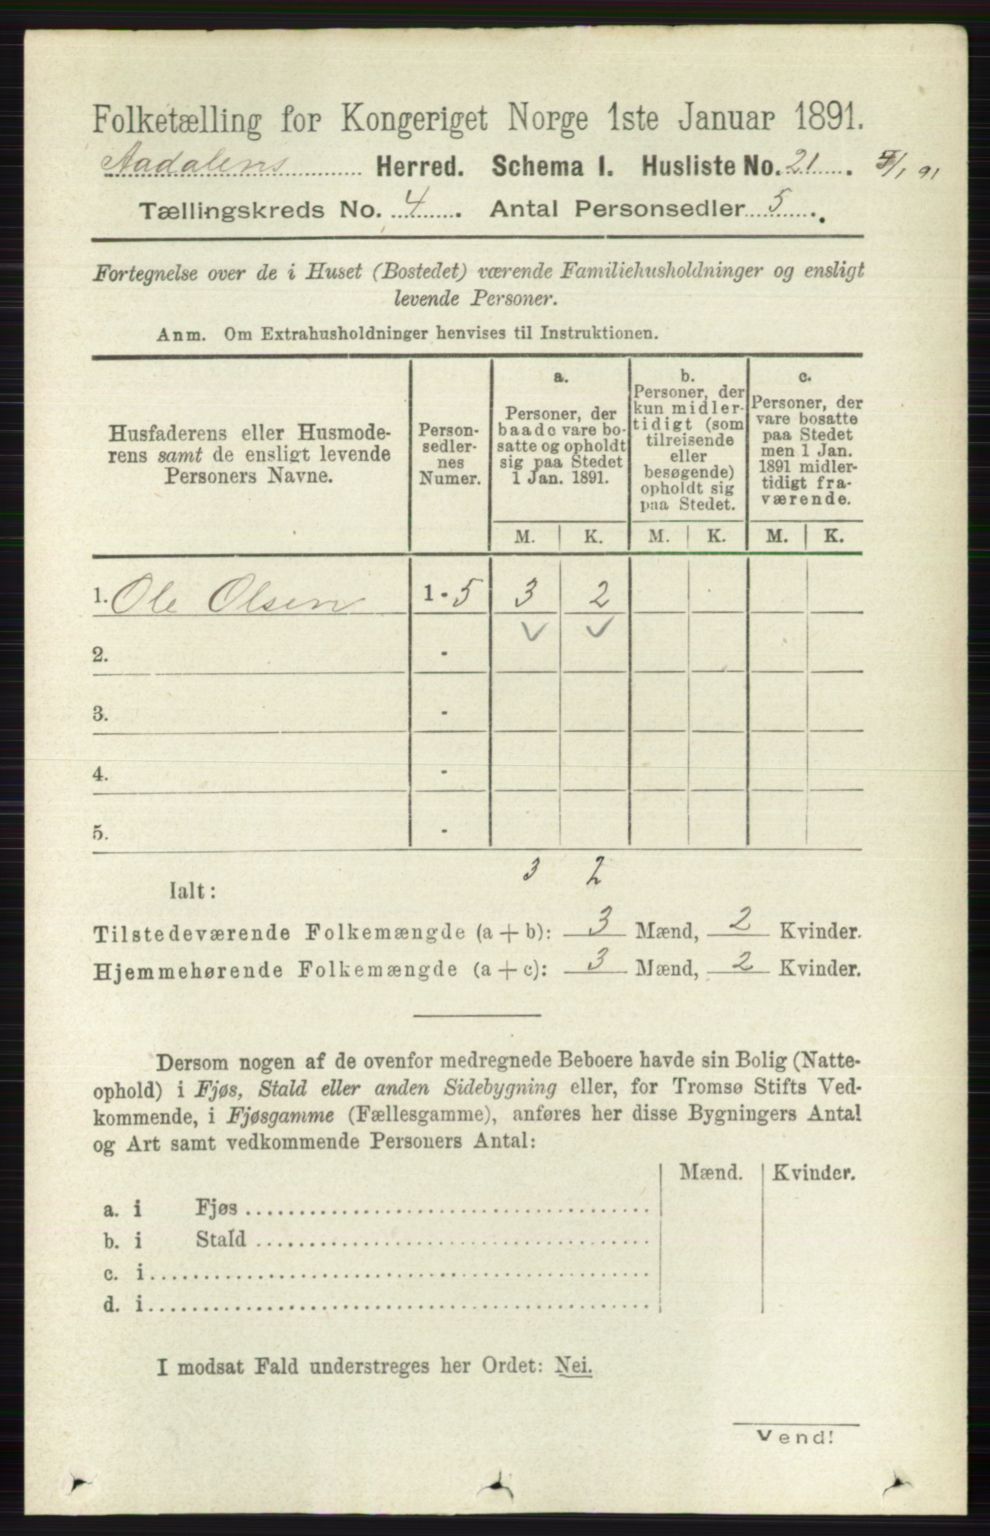 Folketælling for Kongeriget Norge 1ste Januar 1891.
Aadalens Herred. Schema I. Husliste No. 21. 5/1 91
Tællingskreds No. 4. Antal Personsedler 5.
Fortegnelse over de i Huset (Bostedet) værende Familiehusholdninger og ensligt
levende Personer.
Anm. Om Extrahusholdninger henvises til Instruktionen.
Husfaderens eller Husmode-
rens samt de ensligt levende
Personers Navne.
Person-
sedler-
nes
Numer.
a.
Personer, der
baade vare bo-
satte og opholdt
sig paa Stedet
1 Jan. 1891.
b.
Personer, der
kun midler-
tidigt (som
tilreisende
eller
besøgende)
opholdt sig
paa Stedet.
c.
Personer, der
vare bosatte
paa Stedet
men 1 Jan.
1891 midler-
tidigt fra-
værende.
M. K. M. K. M. K.
1. Ole Olsen 1 - 5 3 2
2. -
3. -
4. -
5. -
Ialt: 3 2
Tilstedeværende Folkemængde (a + b): 3 Mænd, 2 Kvinder.
Hjemmehørende Folkemængde (a + c): 3 Mænd, 2 Kvinder.
Dersom nogen af de ovenfor medregnede Beboere havde sin Bolig (Natte-
ophold) i Fjøs, Stald eller anden Sidebygning eller, for Tromsø Stifts Ved-
kommende, i Fjøsgamme (Fællesgamme), anføres her disse Bygningers Antal
og Art samt vedkommende Personers Antal:
Mænd. Kvinder.
a. i Fjøs
b. i Stald
c. i
d. i
I modsat Fald understreges her Ordet: Nei.
Vend!